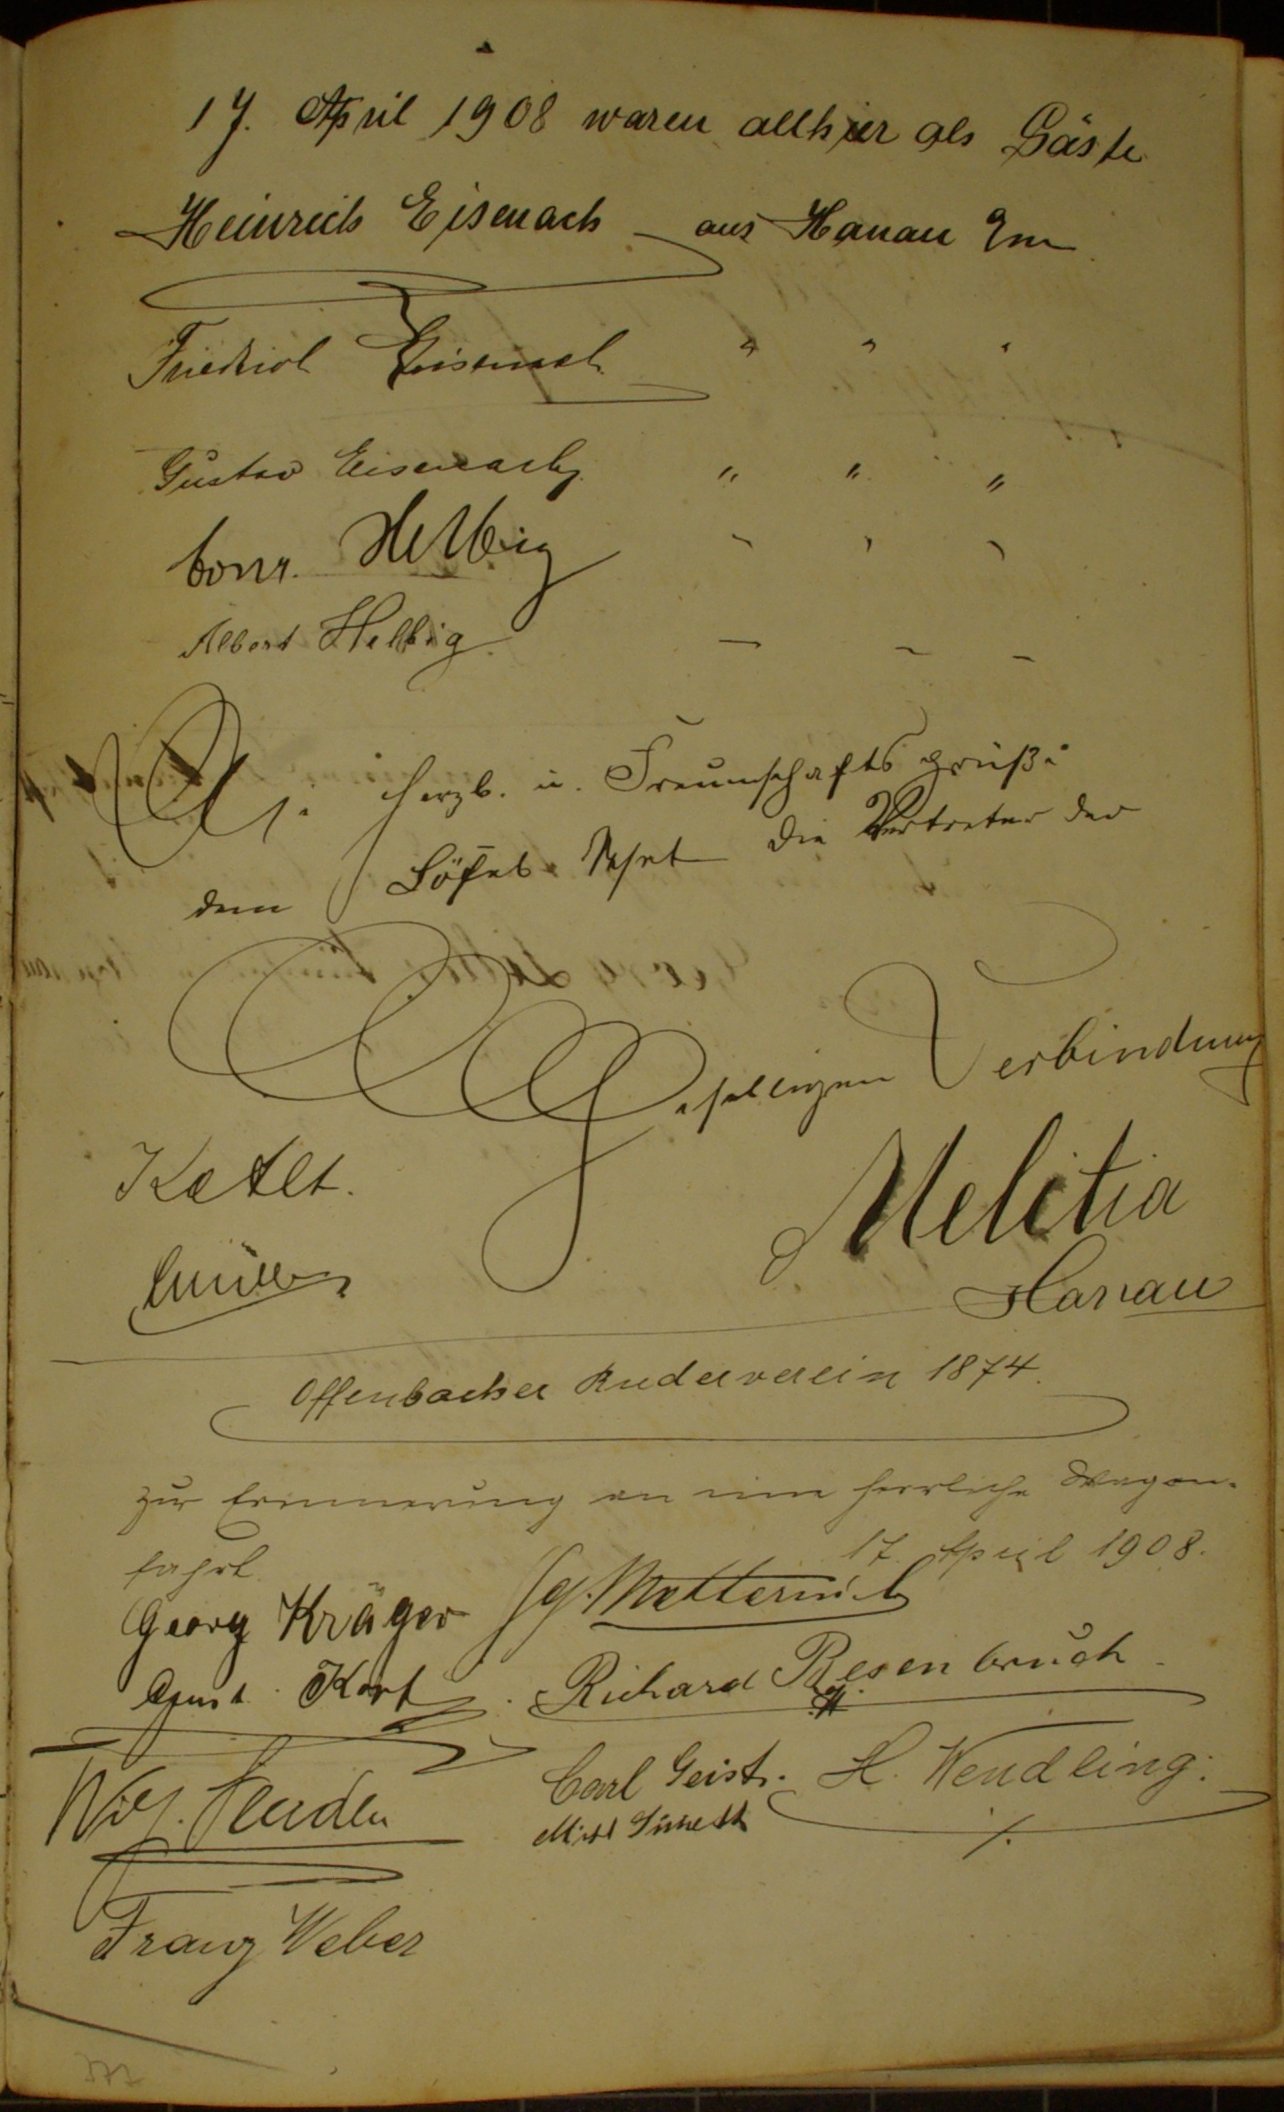 17. April 1908 waren allhier als Gäste
Heinrich Eisenach aus Hanau a/m
Friedrich Eisenach " " "
Gustav Eisenach " " "
Conr. Helbig " " "
Albert Helbig — — —
herzl. u. Freundschafts grüße
dem Die Vertreter der
Geselligen Verbindung
Melitia
Hanau
Offenbacher Ruderverein 1874.
Zur Erinnerung an eine herrliche Wagen-
fahrt 17. April 1908.
Georg Kräger Metternich
Richard Besenbruch
Carl Geist. H. Wendling.
Franz Weber